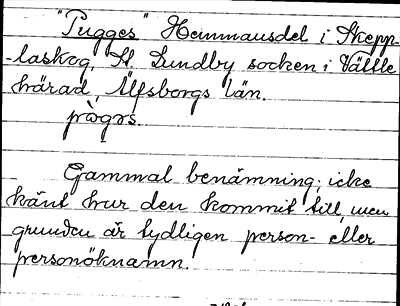 "Pugges" Hemmansdel i Skepp-
-laskog, St. Lundby socken i Vättle
härad, Älfsborgs län.
pùgəs.
Gammal benämning; icke
känt hur den kommit till, men
grunden är tydligen person- eller
personöknamn.